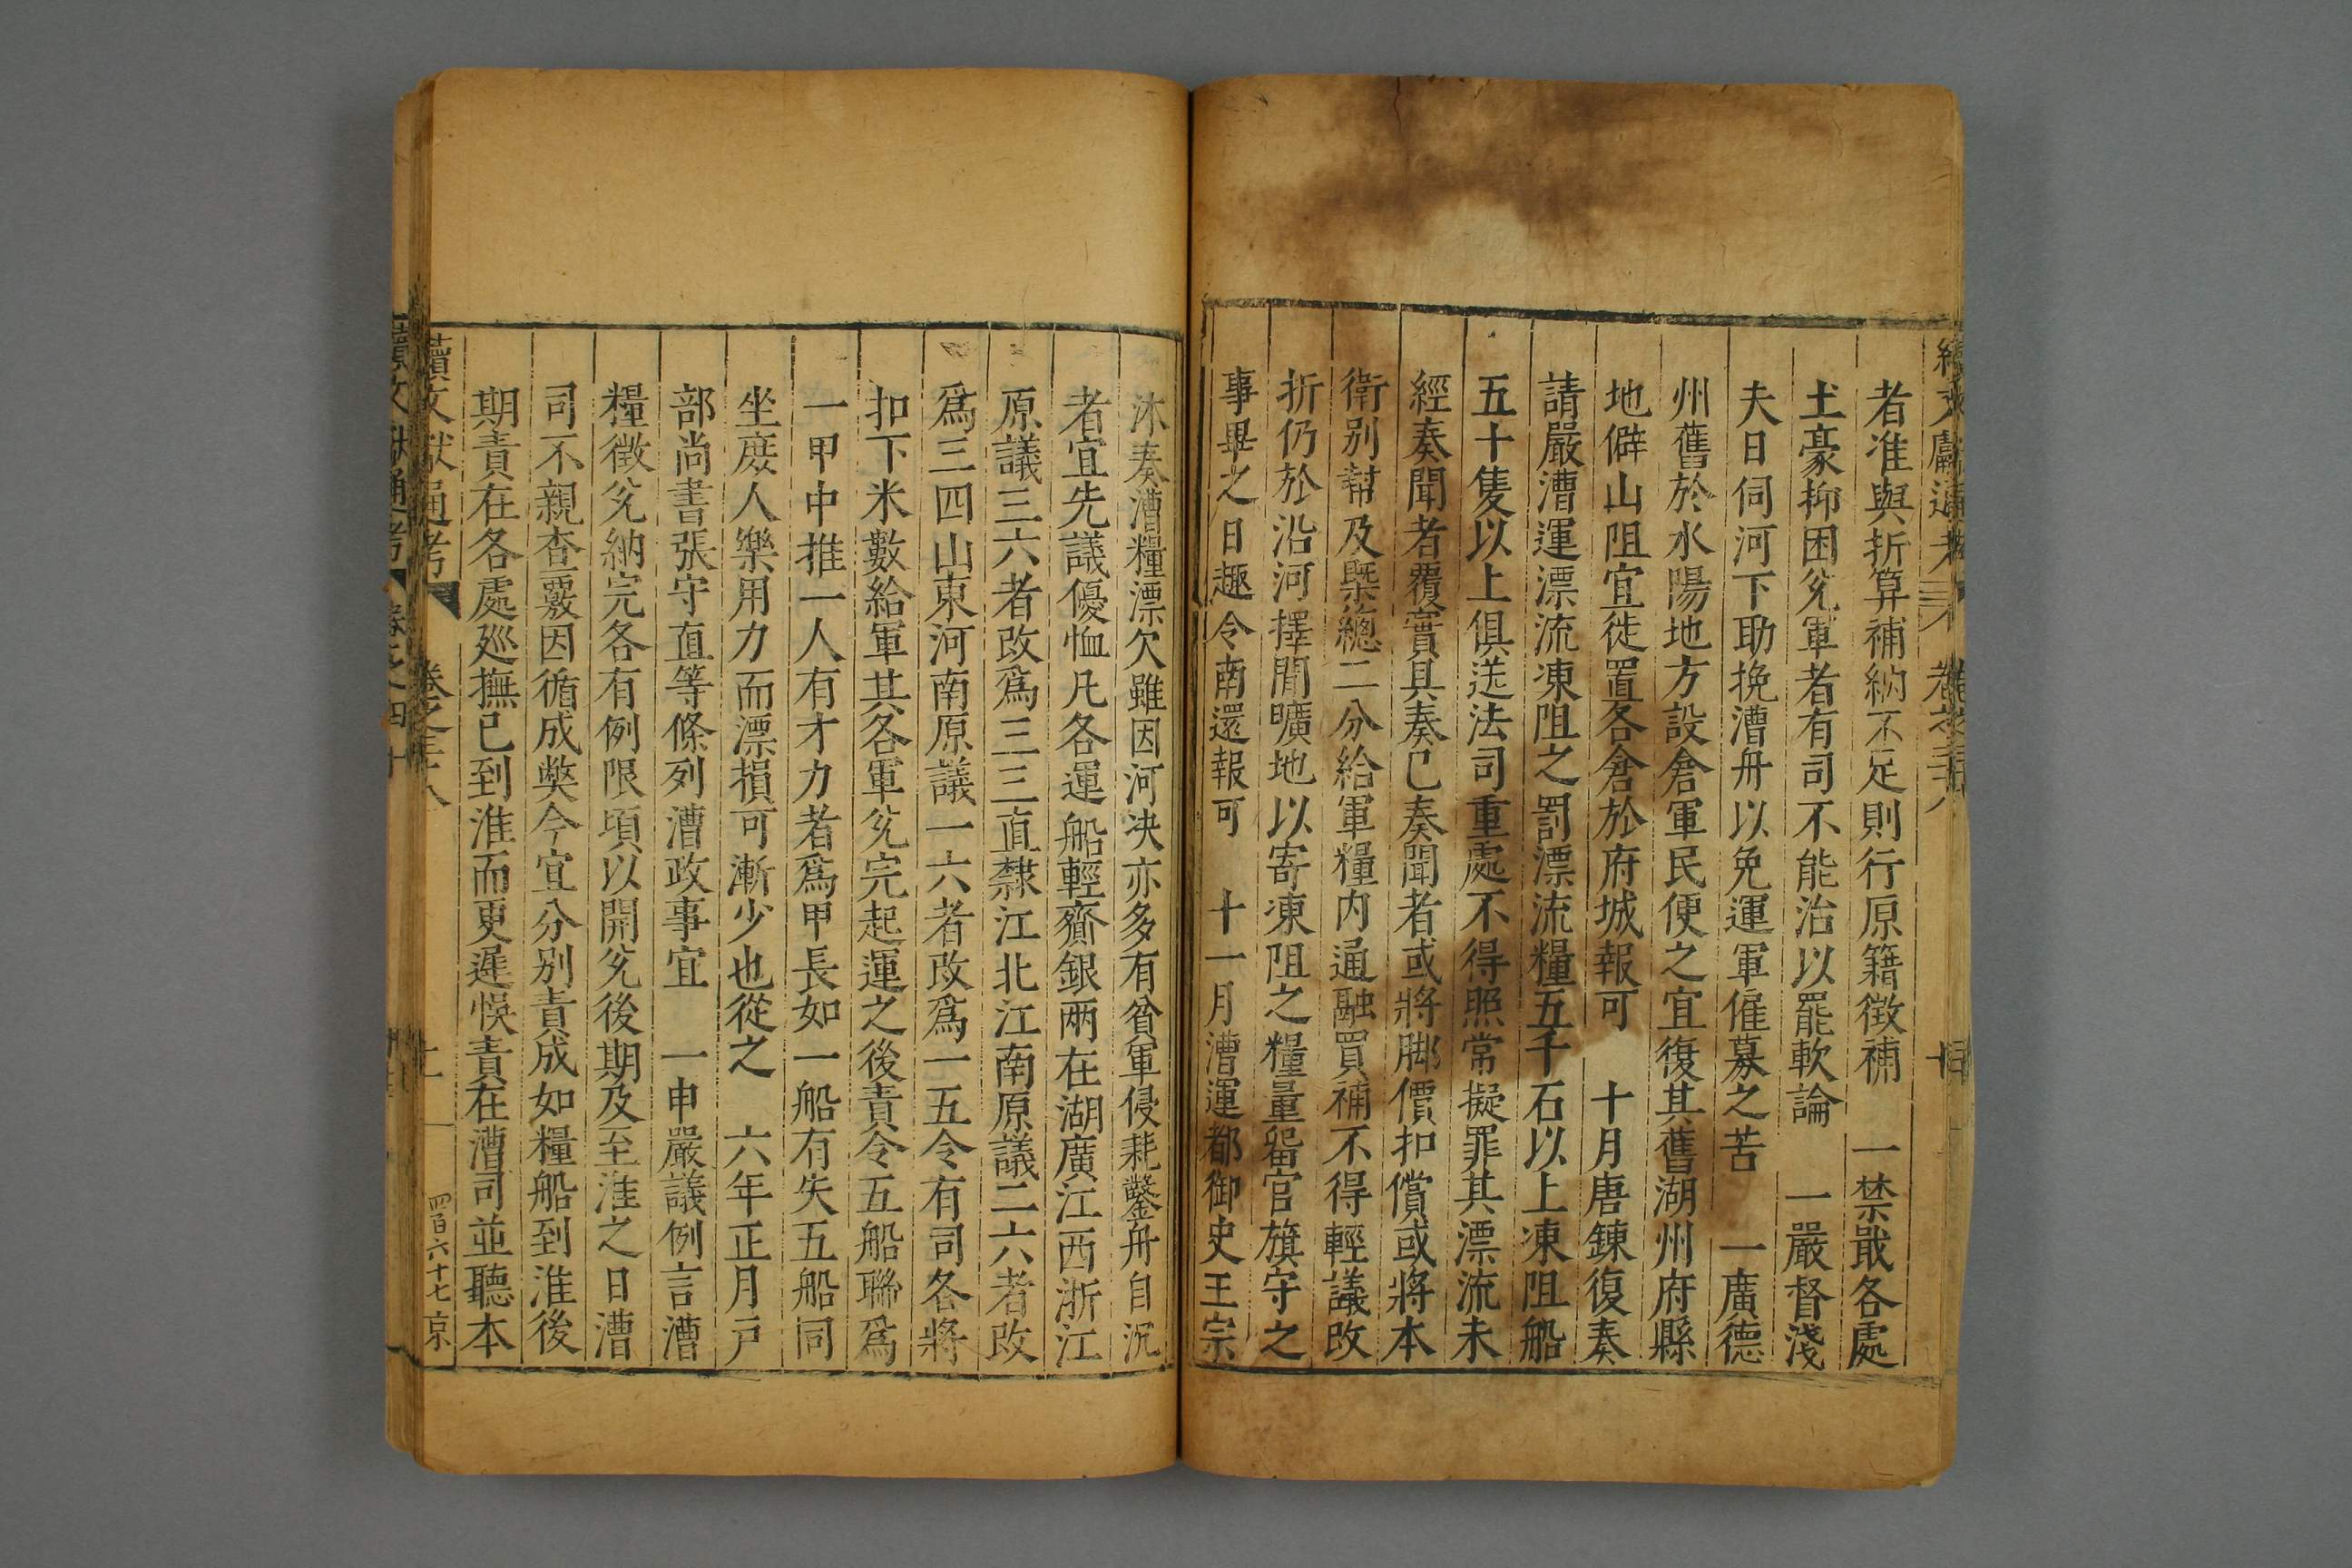 者准與折算補納不足則行原籍徵補　一禁戢各處
土豪抑困兊軍者有司不能治以罷軟論　一嚴督淺
夫日伺河下助挽漕舟以免運軍僱募之苦　一廣德
州舊於水陽地方設倉軍民便之宜復其舊湖州府縣
地僻山阻宜徙置各倉於府城報可　十月唐鍊復奏
請嚴漕運漂流凍阻之罰漂流糧五千石以上凍阻船
五十隻以上俱送法司重處不得照常擬罪其漂流未
經奏聞者覆實具奏已奏聞者或將脚價扣償或將本
衛别幇及槩總二分給軍糧内通融買補不得輕議改
折仍於沿河擇閒曠地以寄凍阻之糧量留官旗守之
事畢之日趣令南還報可　十一月漕運都御史王宗
沐奏漕糧漂欠雖因河决亦多有貧軍侵耗鑿舟自沉
者宜先議優恤凡各運船輕齎銀兩在湖廣江西浙江
原議三六者改爲三三直隸江北江南原議二六者改
爲三四山東河南原議一六者改爲一五令有司各將
扣下米數給軍其各軍兊完起運之後責令五船聯爲
一甲甲中推一人有才力者爲甲長如一船有失五船同
坐庶人樂用力而漂損可漸少也從之　六年正月戸
部尚書張守直等條列漕政事宜　一申嚴議例言漕
糧徵兊納完各有例限頃以開兊後期及至淮之日漕
司不親查覈因循成弊今宜分别責成如糧船到淮後
期責在各處廵撫已到淮而更遲悞責在漕司並聽本
續文獻通考　卷之三十八　四百六十七　京